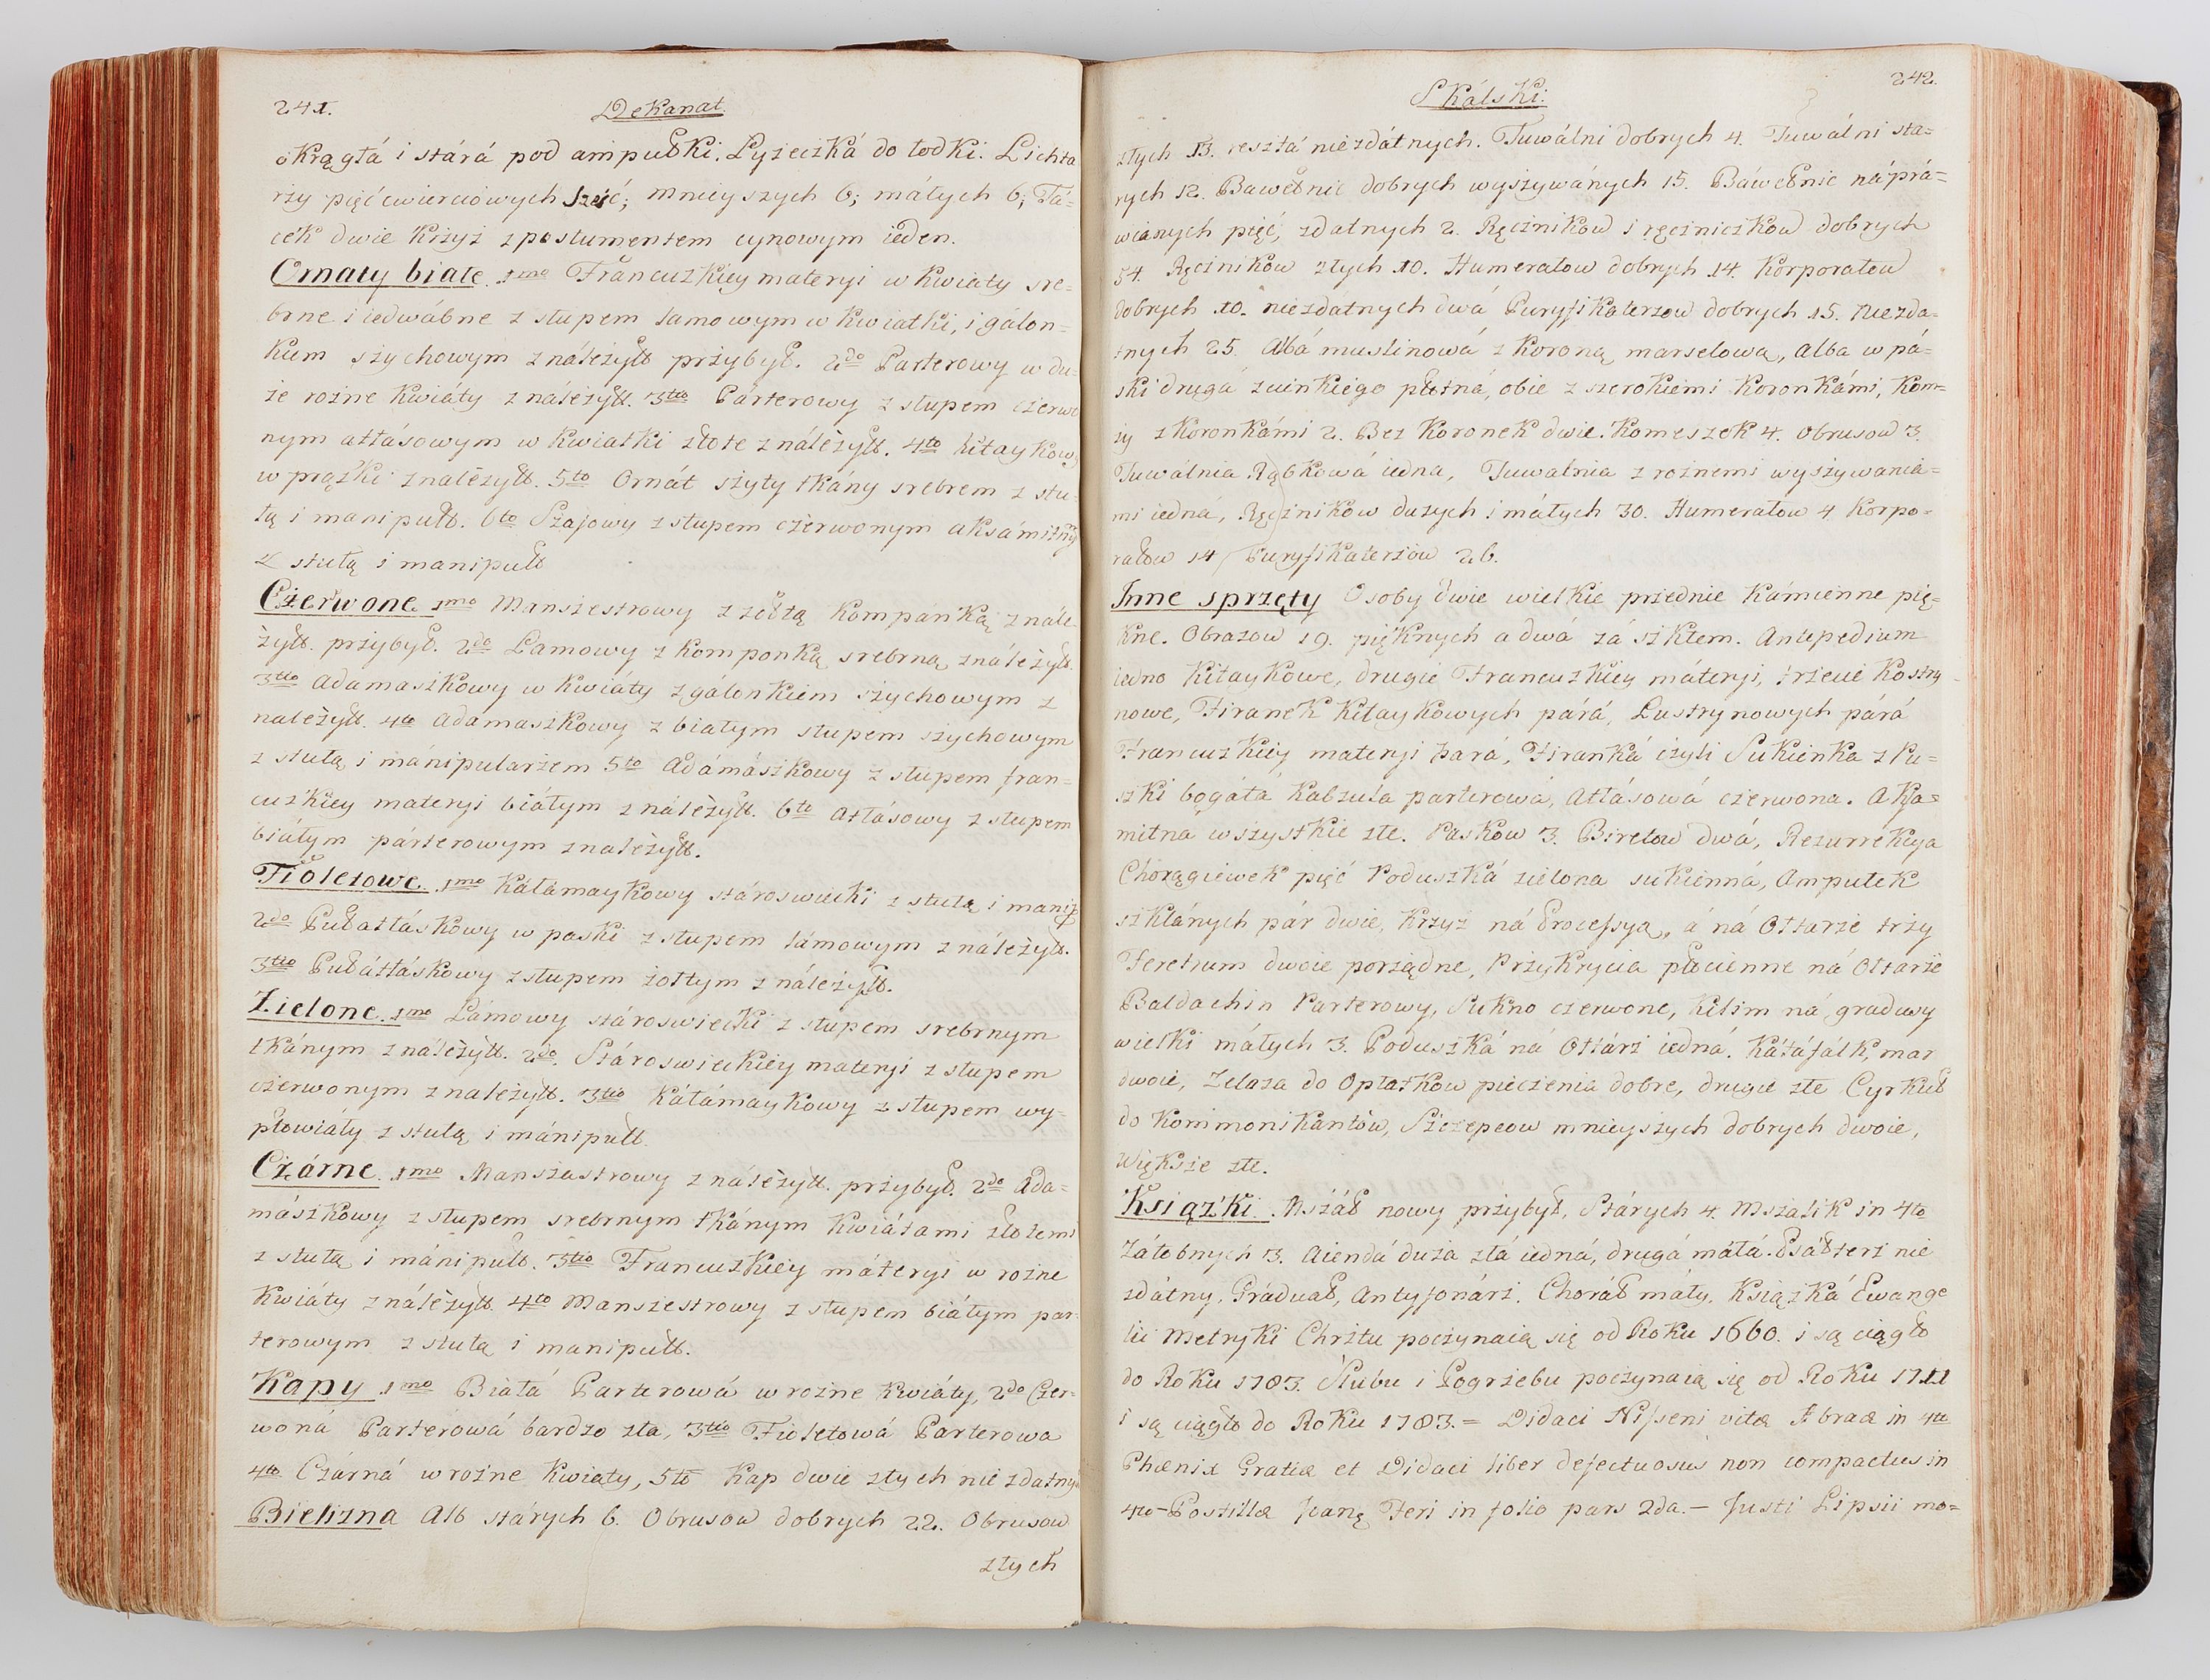 241.
Dekanat.
okrągłá i stárá pod ampułki. Łyżeczká do łodki. Lichta
rzy pięćcwierciowych sześć; mnieyszych 6; máłych 6; Tá=
cek dwie Krzyż z postumentem cynowym ieden.
Ornaty białe. 1mo Francuzkiey materyi w kwiaty sre=
brne i iedwábne z słupem lamowym w kwiatki, i gálon=
kiem szychowym z náleżytł przybył. 2do Parterowy w du=
że rożne kwiáty z náleżytł. 3tio Párterowy z słupem czerwo
nym atłásowym w kwiatki złote z náleżytł. 4to kitaykow,
w prążki z należytł. 5to Ornát szyty tkány srebrem z stu=
łą i manipułł. 6to Szajowy z słupem czerwonym aksámitny
z stułą i manipułł
Czerwone 1mo Manszestrowy z żółtą kompanką z nále
żytł. przybył. 2do Lamowy z komponką srebrną z náleżytł.
3tio adamaszkowy w kwiáty z gálonkiem szychowym z
należytł. 4to adamaszkowy z białym słupem szychowym
z stułą i mánipularzem 5to adámászkowy z słupem fran=
cuzkiey materyi biáłym z náleżytł. 6to atłásowy z słupem
białym párterowym z należytł.
Fioletowe. 1mo kátámaykowy stároswiecki z stułą i manip
2do Pułatłáskowy w paski z słupem lámowym z náleżytł.
3tio Pułátłáskowy z słupem żołtym z náleżytł.
Zielone. 1mo Lámowy stároswiecki z słupem srebrnym
tkánym z náleżytł. 2do Stároswieckiey materyi z słupem
czerwonym z należytł. 3tio kátámaykowy z słupem wy=
płowiáły z stułą i mánipułł.
Czárne. 1mo Manszastrowy z náleżytł. przybył. 2do ada=
mászkowy z słupem srebrnym tkánym kwiátami złotemi
z stułą i mánipułł. 3tio Francuzkiey máteryi w rożne
kwiáty z náleżytł. 4to Manszestrowy z słupem biáłym par
terowym z stułą i manipułł.
Kapy 1mo Biáłá Parterowá w rożne kwiáty, 2do Czer=
woná Parterowá bardzo zła, 3tio Fioletowá Parterowa
4to Czárná w rożne kwiaty, 5to kap dwie złych nie zdatny
Bielizna Alb stárych 6. Obrusow dobrych 22. Obrusow
złych
Skálski.
242.
złych 13. resztá niezdátnych. Tuwálni dobrych 4. Tuwálni sta=
rych 12. Bawełnic dobrych wyszywánych 15. Báwełnic nápra=
wianych pięć, zdatnych 2. Ręcznikow i ręczniczkow dobrych
54. Ręcznikow złych 10. Humerałow dobrych 14. korporałow
dobrych 10. niezdatnych dwá Puryfikaterzow dobrych 15. niezda=
tnych 25. Albá muslinowá z koroną marselową, alba w pá=
ski drugá z cinkiego płótná, obie z szerokiemi koronkámi, kom=
ży z koronkámi 2. Bez koronek dwie. komeszek 4. Obrusow 3.
Tuwálnia Rąbkowá iedna, Tuwalnia z rożnemi wyszywania=
mi iedná, Ręcznikow dużych i máłych 30. Humerałow 4 korpo=
rałow 14 Puryfikaterzow 26.
Inne sprzęty Osoby dwie wielkie przednie kámienne pię=
kne. Obrazow 19. pięknych a dwá zá szkłem. Antepedium
iedno kitaykowe, drugie Francuzkiey máteryi, trzecie kostry
nowe, Firanek kitaykowych párá, Lustrynowych párá
Francuzkiey materyi pará, Firanká czyli Sukienka z Pu=
szki bogátá kabzuła parterowá, atłásowá czerwona. Aksa=
mitná wszystkie złe. Paskow 3. Biretow dwá, Rezurrekcya
Chorągiewek pięć Poduszká zielona sukienná, Ampułek
szklánych pár dwie, krzyż ná Processyą, á ná Ołtarze trzy
Feretrum dwoie porządne, Przykrycia płocienne ná Ołtarze
Baldachin Parterowy, Sukno czerwone, kilim ná gradusy
wielki máłych 3. Poduszká ná Ołtárz iedná. kátáfálk, mar
dwoie, Zelaza do Opłatkow pieczenia dobre, drugie złe Cyrkuł
do kommonikantów, Szczepcow mnieyszych dobrych dwoie,
większe złe.
Książki. Mszáł nowy przybył, Stárych 4. mszalik in 4to
żáłobnych 3. Aiendá duża złá iedná, drugá máłá. Psáłterz nie
zdátny. Gráduał, Antyfonárz. Choráł máły. książká Ewange
lii Metryki Chrztu poczynaią się od Roku 1660. i są ciągło
do Roku 1783. Slubu i Pogrzebu poczynaią się od Roku 1711
i są ciągło do Roku 1783. = Didaci Nisseni vitæ Abraæ in 4to
Phœnix Gratiæ et Didaci liber defectuosus non compactus in
4to - Postillæ Joanę Feri in folio pars 2da. - Justi Lipsii mo=